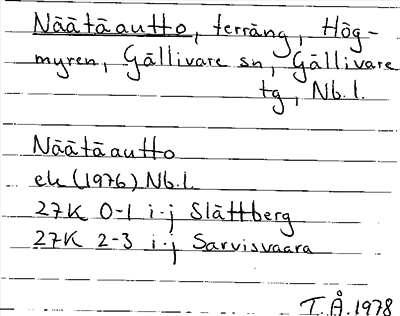 Näätäautto, terräng, Hög-
myren, Gällivare sn, Gällivare
tg, Nb.l.
Näätäautto
ek (1976) Nb.l.
27K 0-1 i-j Slättberg
27K 2-3 i-j Sarvisvaara
I.Å.1978